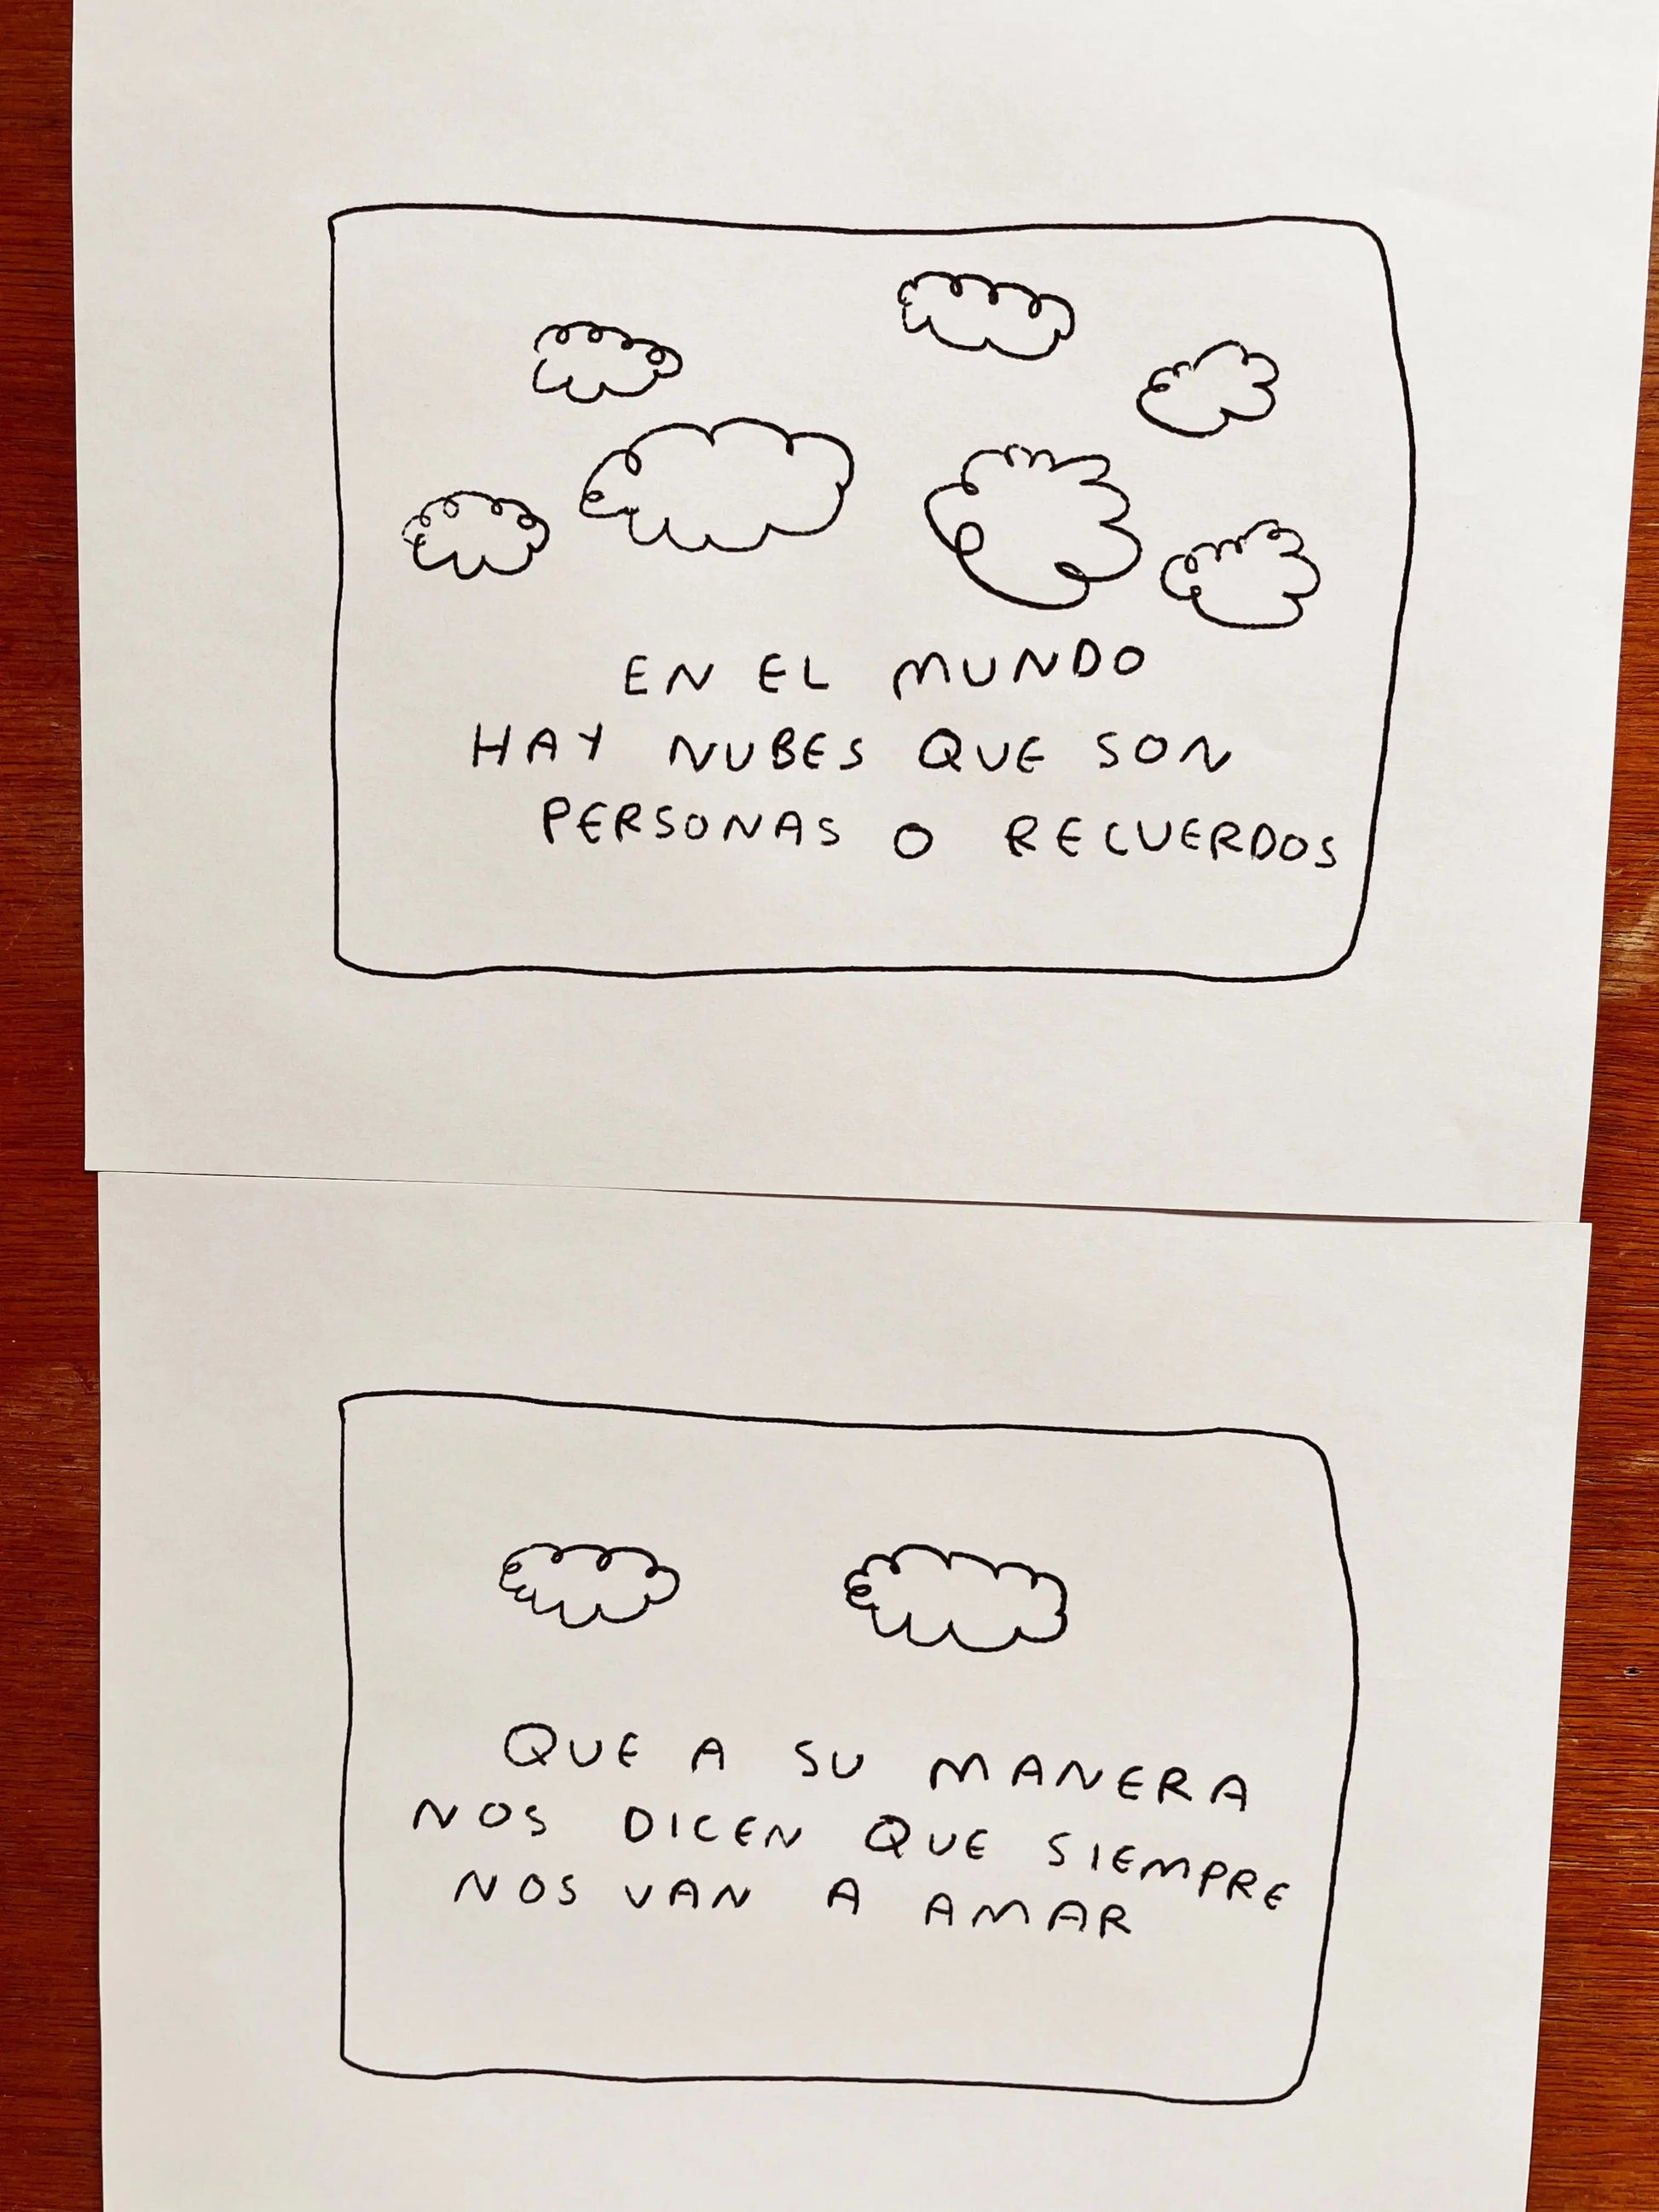 EN EL MUNDO
HAY NUBES QUE SON
PERSONAS O RECUERDOS
QUE A SU MANERA
NOS DICEN QUE SIEMPRE
NOS VAN A AMAR